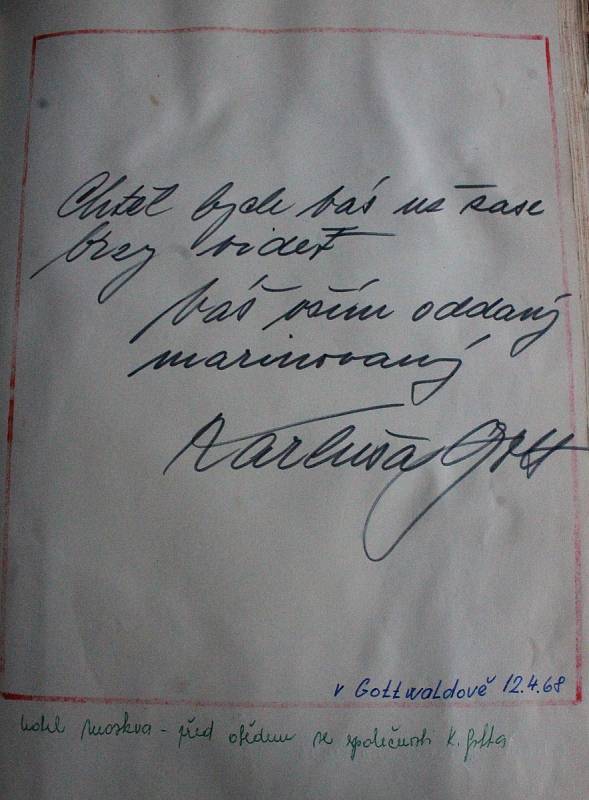 Chtěl bych Vás už zase
brzy vidět
Váš vším oddaný
marinovaný
Karluša Gott
v Gottwaldově 12.4.68
hotel Moskva - před obědem ve společnosti K. Gotta